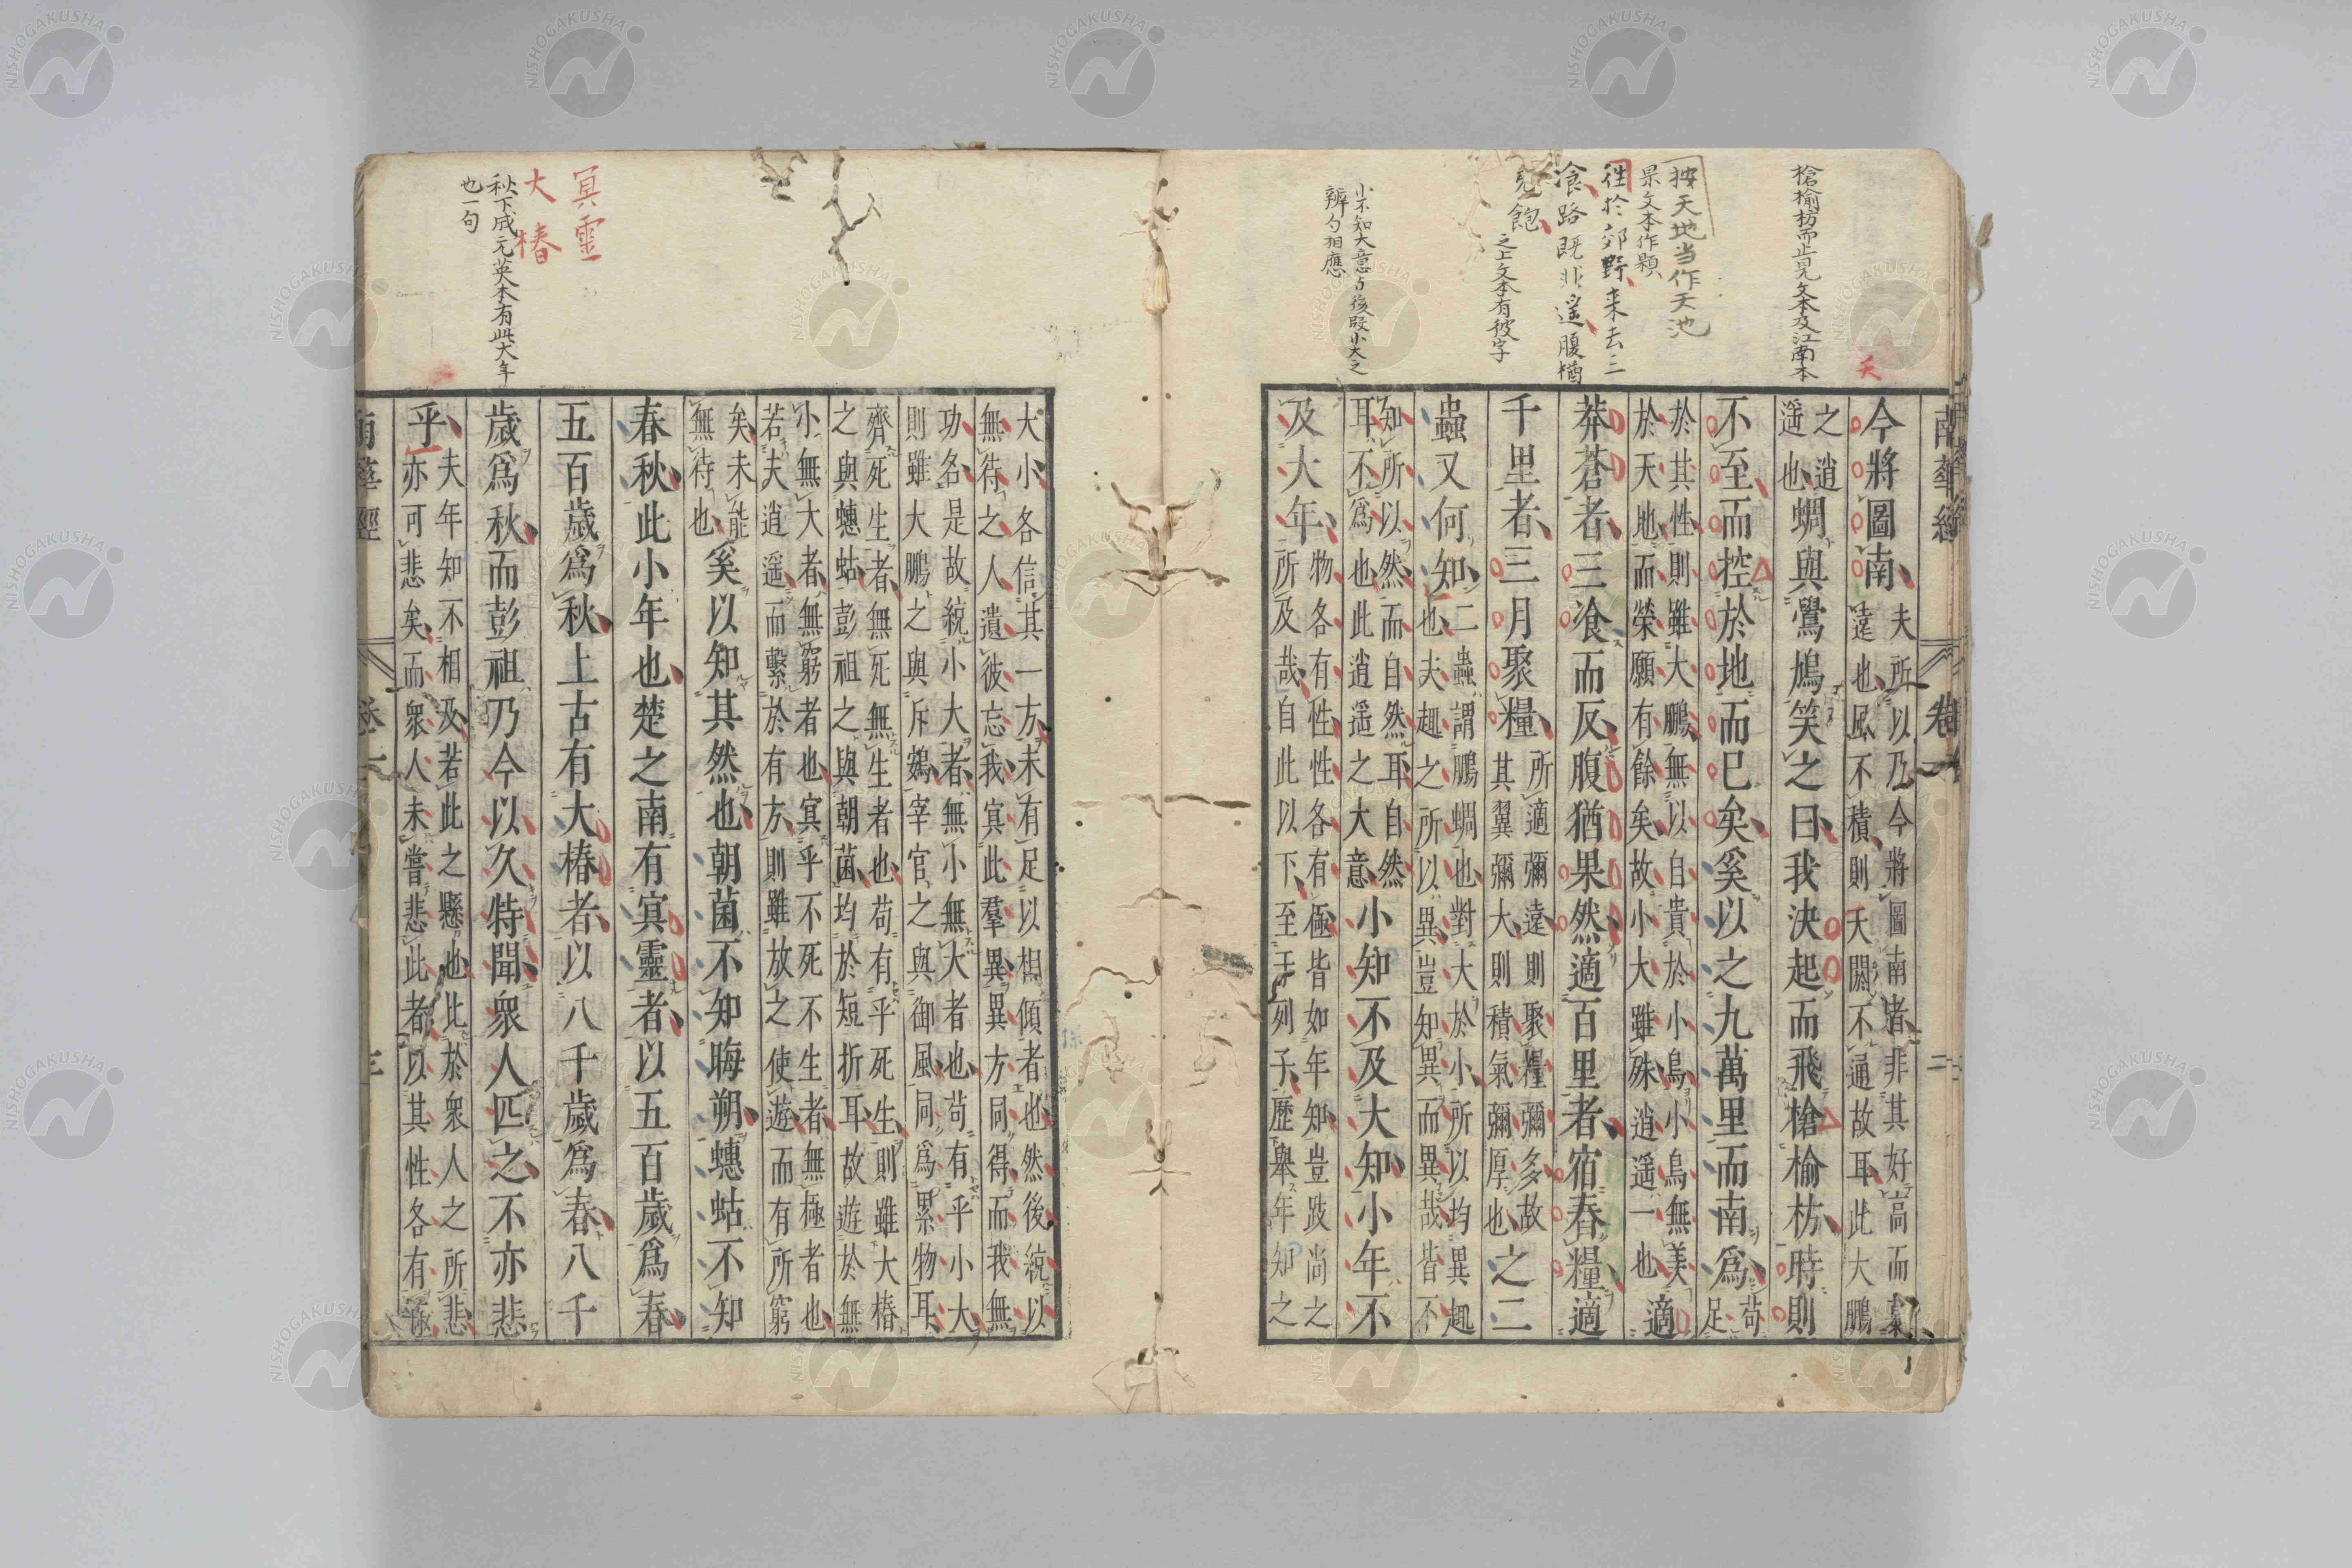 南華經 卷一 二
槍榆枋而止見文本及江南本
天
按天地当作天池
果文本作顆
徃於郊野来去三
飡路既非遥腹猶
充飽之上文本有彼字
小不知大意与後段小大之
辨勺相應
今將圖南
夫所以乃今將圖南者非其好高而慕
遠也風不積則夭閼不通故耳此大鵬
之逍
遥也
蜩與鷽鳩笑之曰我決起而飛槍榆枋時則
不至而控於地而已矣奚以之九萬里而南爲
苟
足
於其性則雖大鵬無以自貴於小鳥小鳥無羨
於天地而榮願有餘矣故小大雖殊逍遥一也
適
莽蒼者三飡而反腹猶果然適百里者宿舂糧適
千里者三月聚糧
所適彌遠則聚糧彌多故
其翼彌大則積氣彌厚也
之二
蟲又何知
二蟲謂鵬蜩也對大於小所以均異趣
也夫趣之所以異豈知異而異哉皆不
知所以然而自然耳自然
耳不爲也此逍遥之大意
小知不及大知小年不
及大年
物各有性性各有極皆如年知豈跂尚之
所及哉自此以下至于列子歷舉年知之
冥靈
大椿
秋下成元英本有此大年
也一句
大小各信其一方未有足以相傾者也然後統以
無待之人遺彼忘我冥此羣異異方同得而我無
功名是故統小大者無小無大者也苟有乎小大
則雖大鵬之與斥鷃宰官之與御風同爲累物耳
齊死生者無死無生者也苟有乎死生則雖大椿
之與蟪蛄彭祖之與朝菌均於短折耳故遊於無
小無大者無窮者也冥乎不死不生者無極者也
若夫逍遥而繫於有方則雖放之使遊而有所窮
矣未能
無待也
奚以知其然也朝菌不知晦朔蟪蛄不知
春秋此小年也楚之南有冥靈者以五百歲爲春
五百歲爲秋上古有大椿者以八千歲爲春八千
歲爲秋而彭祖乃今以久特聞衆人匹之不亦悲
乎
夫年知不相及若此之懸也比於衆人之所悲
亦可悲矣而衆人未嘗悲此者以其性各有極
南華經 卷一 三